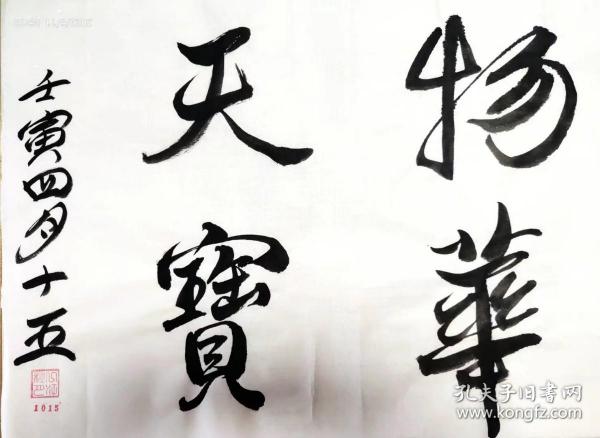 物華
天寶
壬寅四月十五
1015
孔夫子旧书网
www.kongfz.com